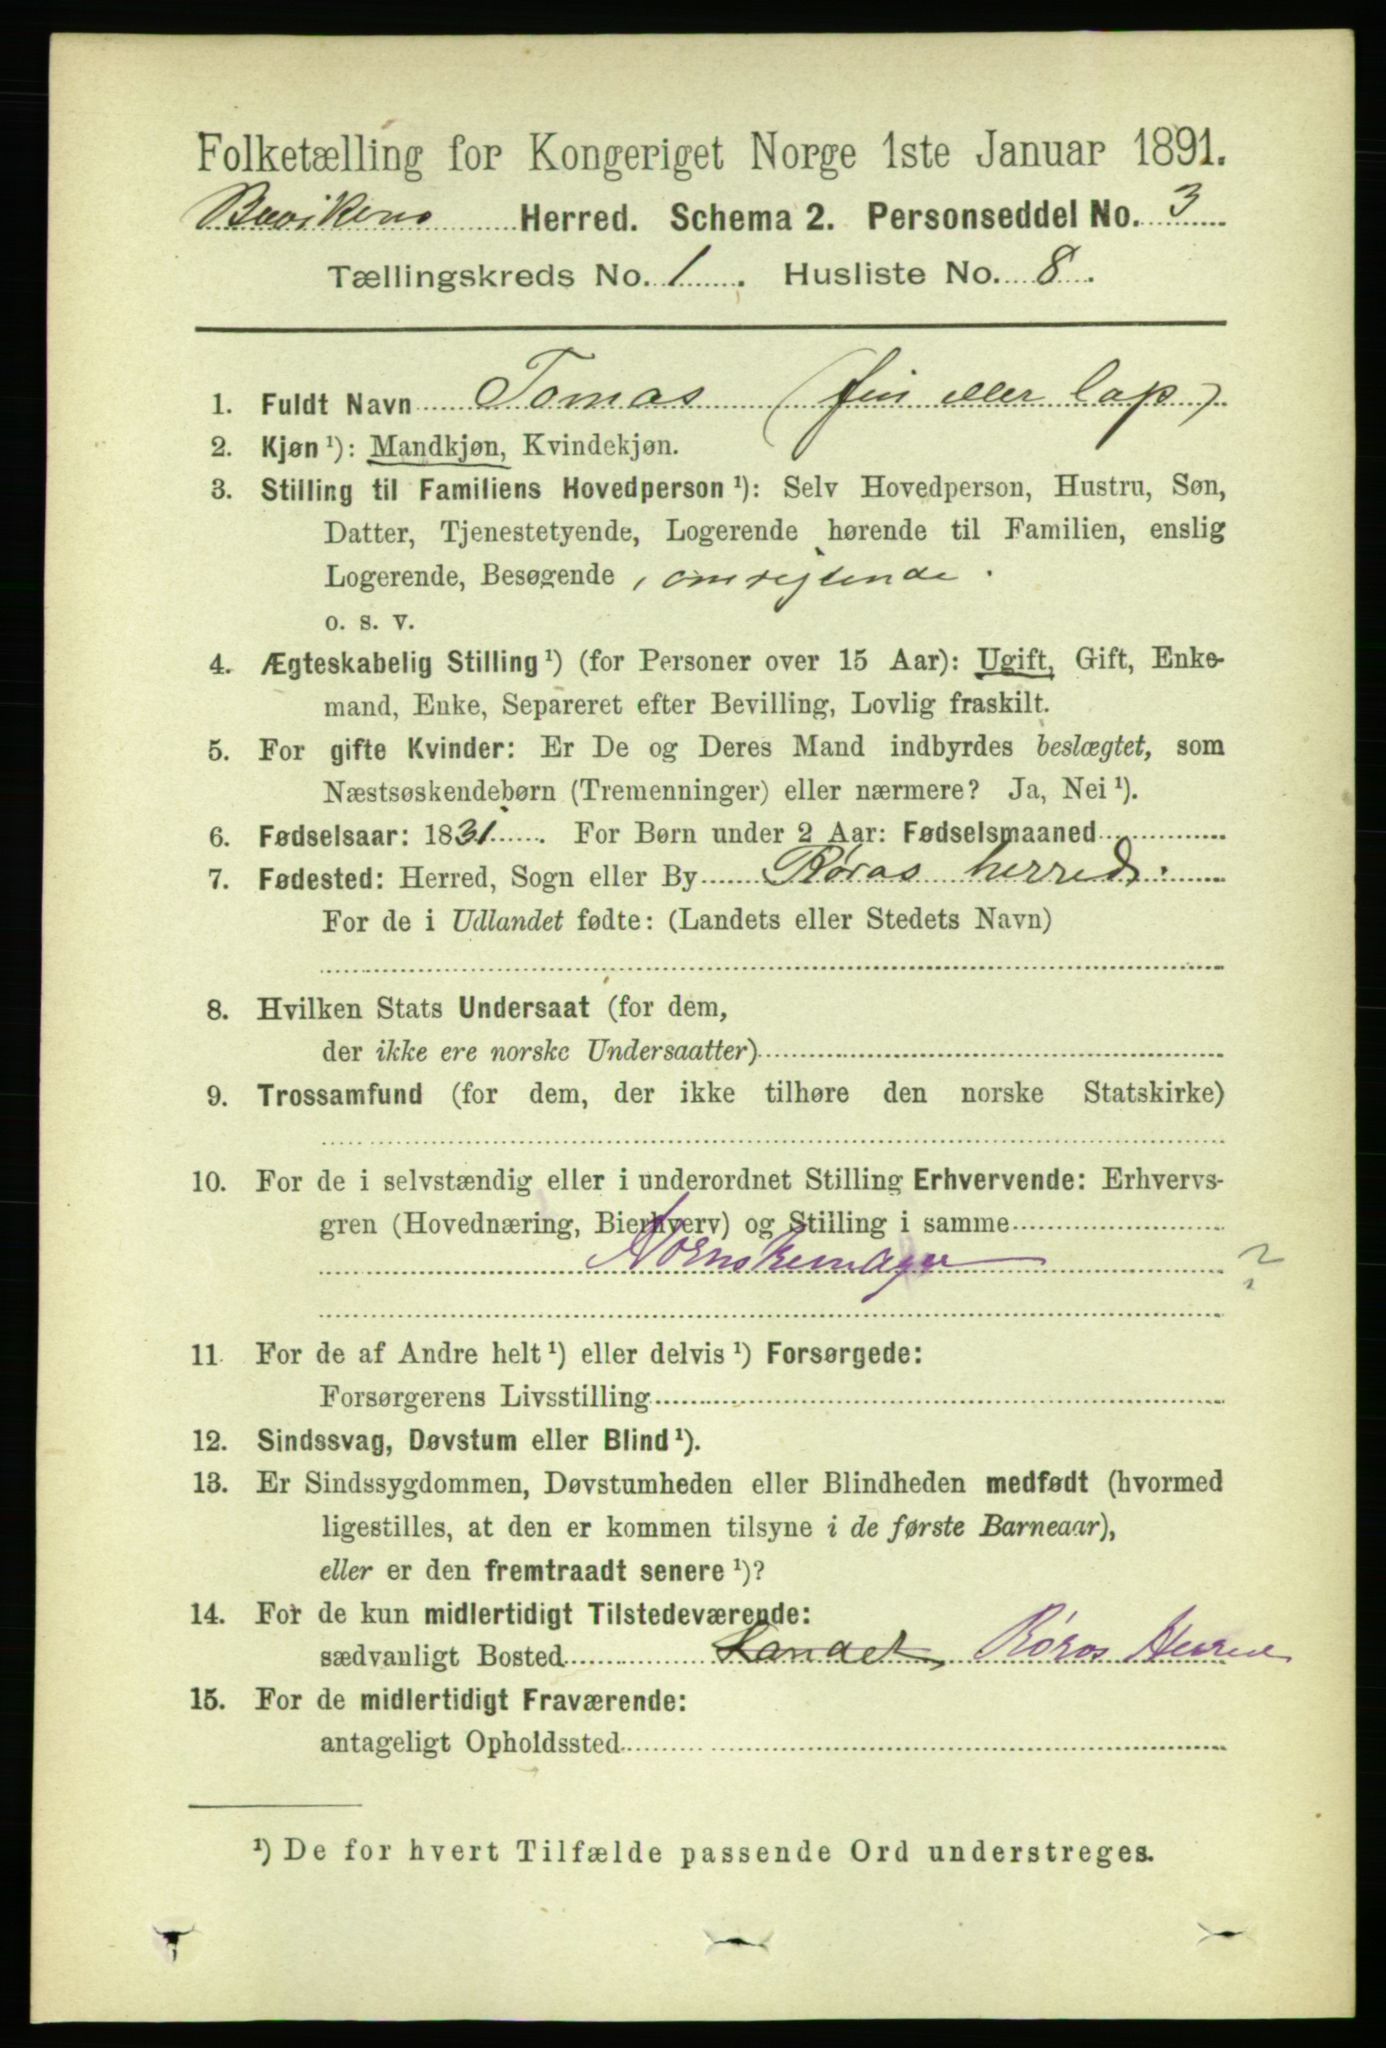 Folketælling for Kongeriget Norge 1ste Januar 1891.
Buvikens Herred. Schema 2. Personseddel No. 3
Tællingskreds No. 1. Husliste No. 8.
1. Fuldt Navn Tomas (fin eller lap)
2. Kjøn ¹): Mandkjøn, Kvindekjøn.
3. Stilling til Familiens Hovedperson ¹): Selv Hovedperson, Hustru, Søn,
Datter, Tjenestetyende, Logerende hørende til Familien, enslig
Logerende, Besøgende, omrejsende.
o. s. v.
4. Ægteskabelig Stilling ¹) (for Personer over 15 Aar): Ugift, Gift, Enke-
mand, Enke, Separeret efter Bevilling, Lovlig fraskilt.
5. For gifte Kvinder: Er De og Deres Mand indbyrdes beslægtet, som
Næstsøskendebørn (Tremenninger) eller nærmere? Ja, Nei ¹).
6. Fødselsaar: 1831. For Børn under 2 Aar: Fødselsmaaned
7. Fødested: Herred, Sogn eller By Røros herred.
For de i Udlandet fødte: (Landets eller Stedets Navn)
8. Hvilken Stats Undersaat (for dem,
der ikke ere norske Undersaatter)
9. Trossamfund (for dem, der ikke tilhøre den norske Statskirke)
10. For de i selvstændig eller i underordnet Stilling Erhvervende: Erhvervs-
gren (Hovednæring, Bierhverv) og Stilling i samme
Hornskemager ?
11. For de af Andre helt ¹) eller delvis ¹) Forsørgede:
Forsørgerens Livsstilling
12. Sindssvag, Døvstum eller Blind ¹).
13. Er Sindssygdommen, Døvstumheden eller Blindheden medfødt (hvormed
ligestilles, at den er kommen tilsyne i de første Barneaar),
eller er den fremtraadt senere ¹)?
14. For de kun midlertidigt Tilstedeværende:
sædvanligt Bosted Landet, Røros Herred
15. For de midlertidigt Fraværende:
antageligt Opholdssted
¹) De for hvert Tilfælde passende Ord understreges.